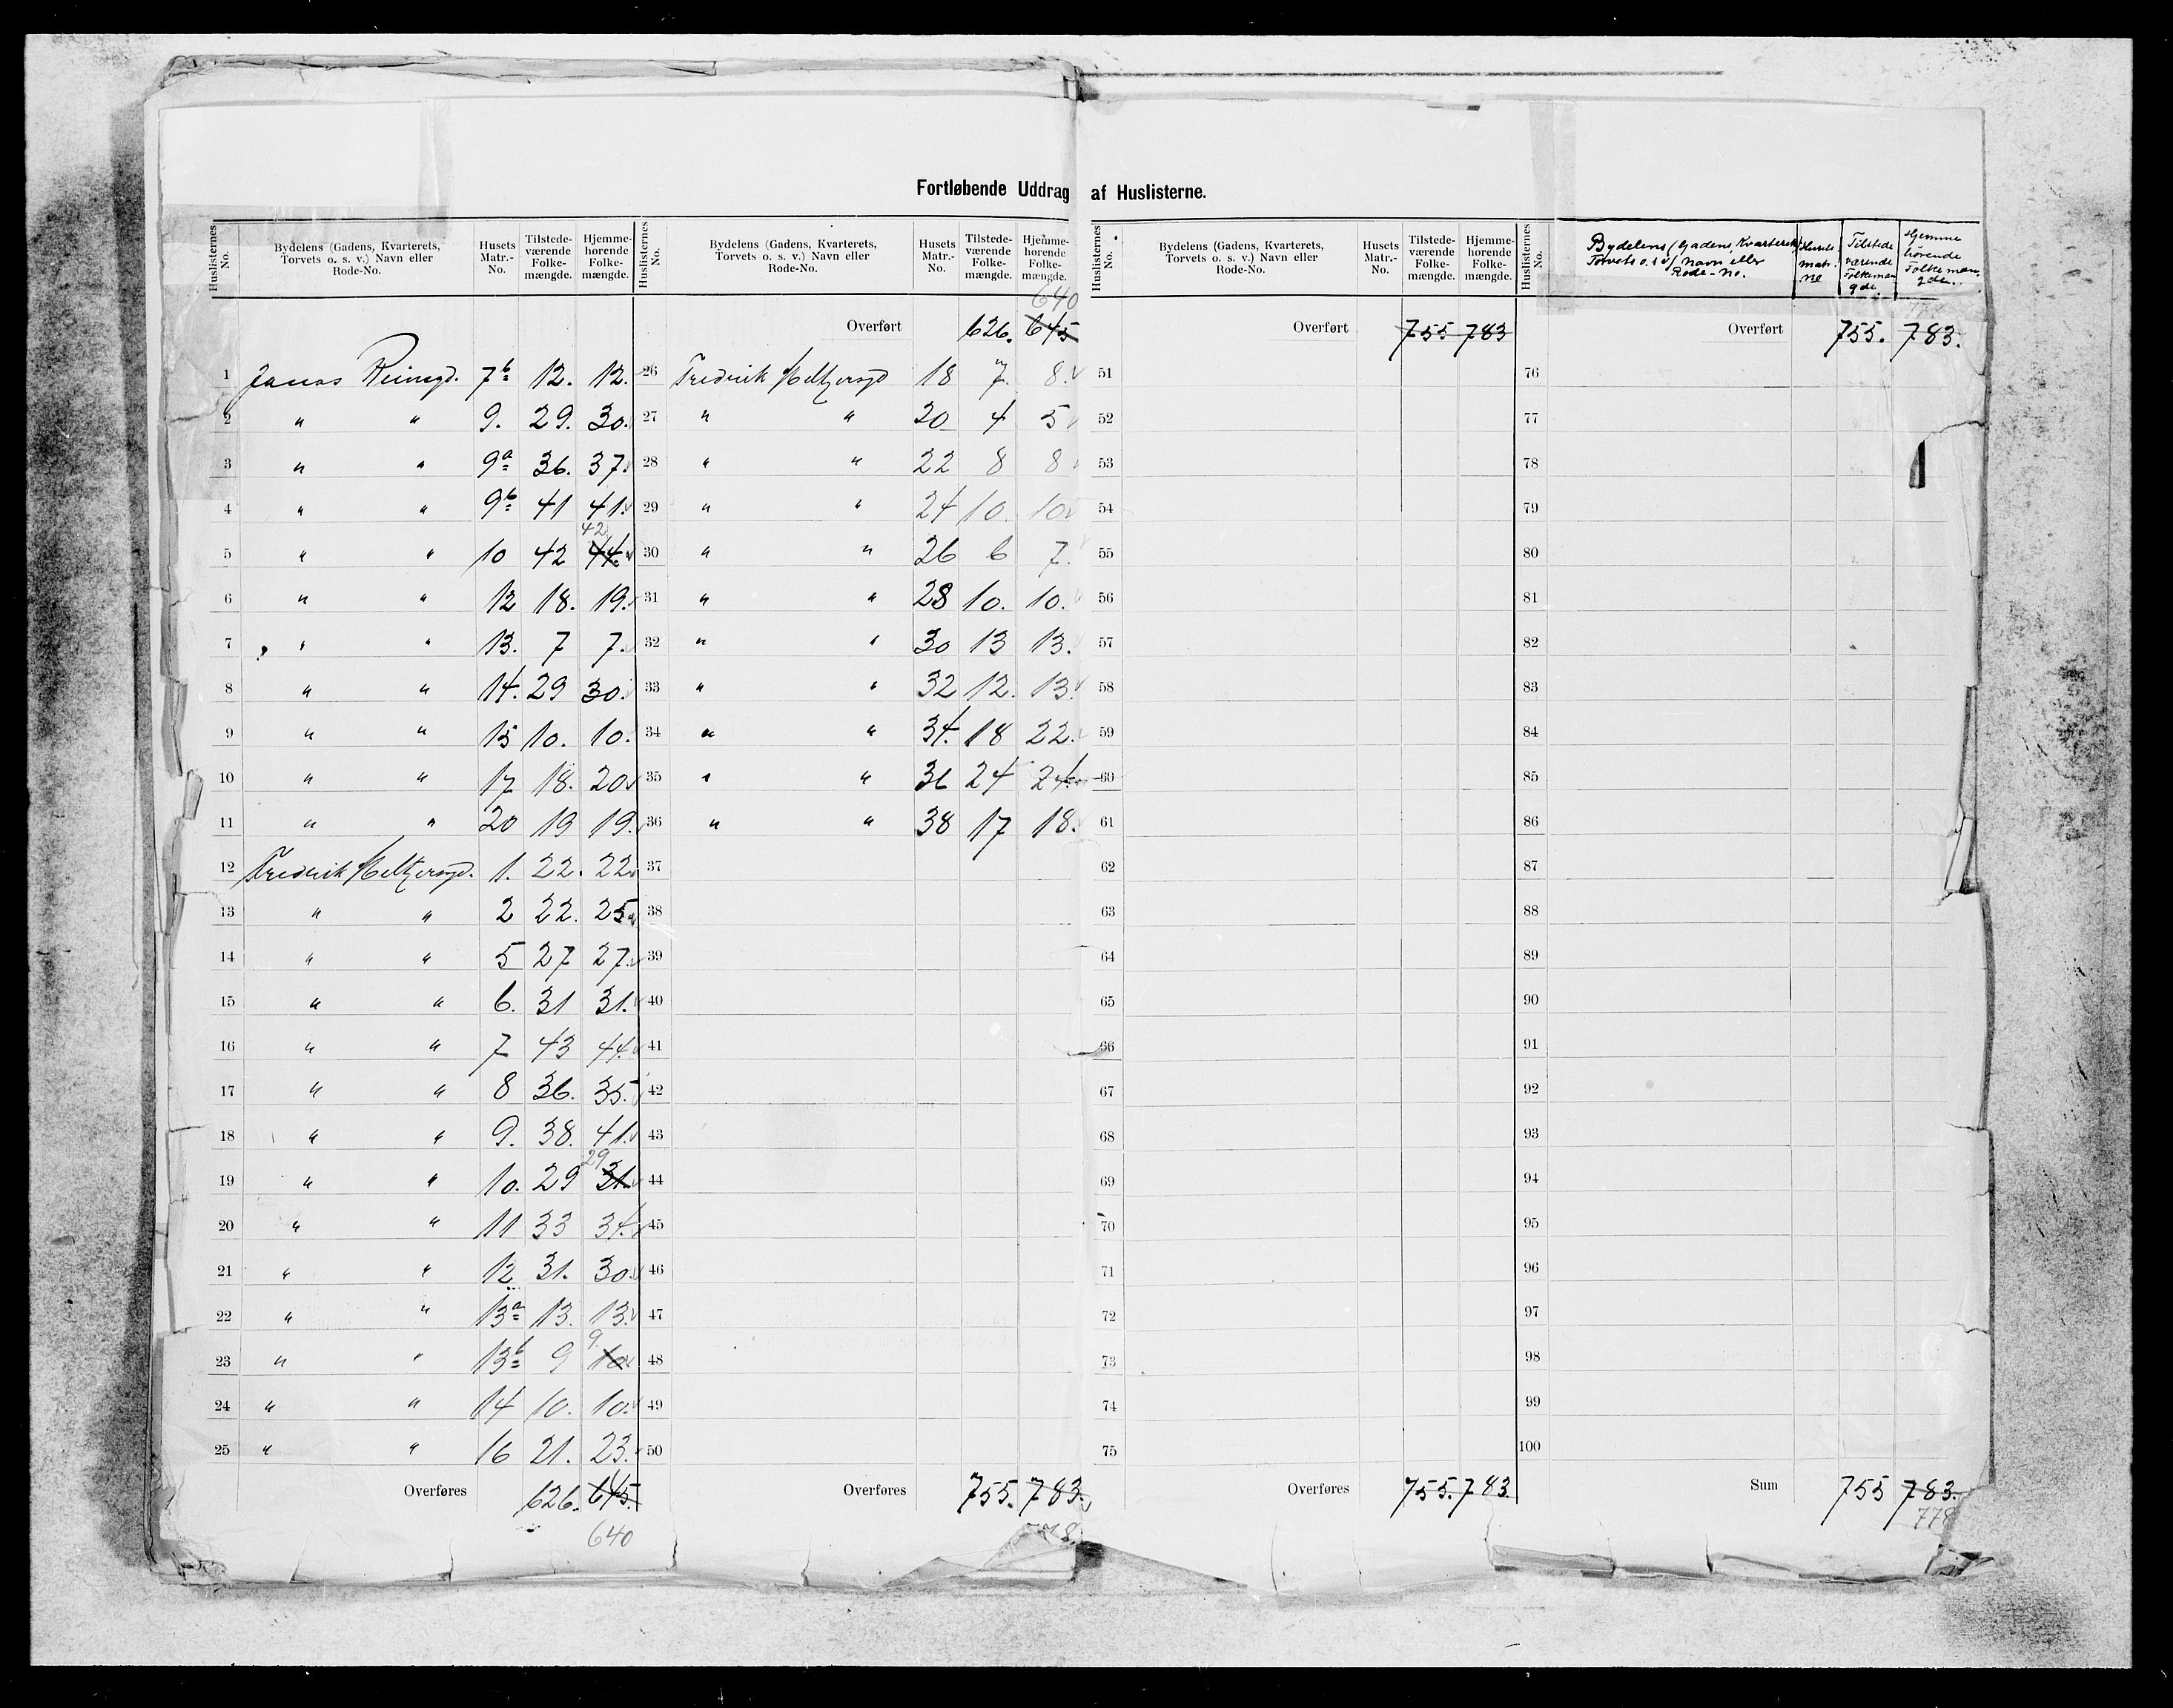 Fortløbende Uddrag af Huslisterne.
Huslisternes No. | Bydelens (Gadens, Kvarterets, Torvets o. s. v.) Navn eller Rode-No. | Husets Matr.-No. | Tilstede-værende Folke-mængde. | Hjemme-hørende Folke-mængde.
1 Jonas Reinsgd. 7b 12. 12.
2 " " 9. 29. 30.
3 " " 9a 36. 37.
4 " " 9b 41 41.
5 " " 10 42 44. 42
6 " " 12 18. 19.
7 " " 13. 7 7.
8 " " 14. 29 30.
9 " " 15 10. 10.
10 " " 17 18. 20
11 " " 20 19 19.
12 Fredrik Meltzersgd. 1. 22. 22
13 " " 2 22. 25
14 " " 5 27 27.
15 " " 6. 31 31.
16 " " 7 43 44.
17 " " 8 36. 35.
18 " " 9. 38. 41.
19 " " 10. 29 31. 29
20 " " 11 33 34.
21 " " 12 31. 30.
22 " " 13a 13. 13.
23 " " 13b 9 10 9.
24 " " 14 10. 10.
25 " " 16 21. 23.
Overføres 626. 645.
640
Huslisternes No. | Bydelens (Gadens, Kvarterets, Torvets o. s. v.) Navn eller Rode-No. | Husets Matr.-No. | Tilstede-værende Folke-mængde. | Hjemme-hørende Folke-mængde.
640
Overført 626. 645
26 Fredrik Meltzersgd 18 7. 8.
27 " " 20 4 5
28 " " 22 8 8
29 " " 24 10 10
30 " " 26 6 7.
31 " " 28 10. 10.
32 " " 30 13 13.
33 " " 32 12. 13.
34 " " 34. 18 22.
35 " " 36 24 24.
36 " " 38 17 18.
37
38
39
40
41
42
43
44
45
46
47
48
49
50
Overføres 755. 783.
778.
Huslisternes No. | Bydelens (Gadens, Kvarterets, Torvets o. s. v.) Navn eller Rode-No. | Husets Matr.-No. | Tilstede-værende Folke-mængde. | Hjemme-hørende Folke-mængde.
Overført 755 783
51
52
53
54
55
56
57
58
59
60
61
62
63
64
65
66
67
68
69
70
71
72
73
74
75
Overføres 755. 783.
Huslisternes No. | Bydelens (Gadens, Kvarterets, Torvets o. s. v) Navn eller Rode-No. | Husets matr. no | Tilstede værende Folkemængde | Hjemme hørende Folkemængde.
Overført 755. 783.
76
77
78
79
80
81
82
83
84
85
86
87
88
89
90
91
92
93
94
95
96
97
98
99
100
Sum 755 783.
778